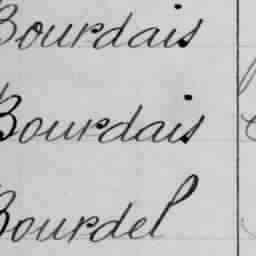 Bourdais
Bourdais
Bourdel